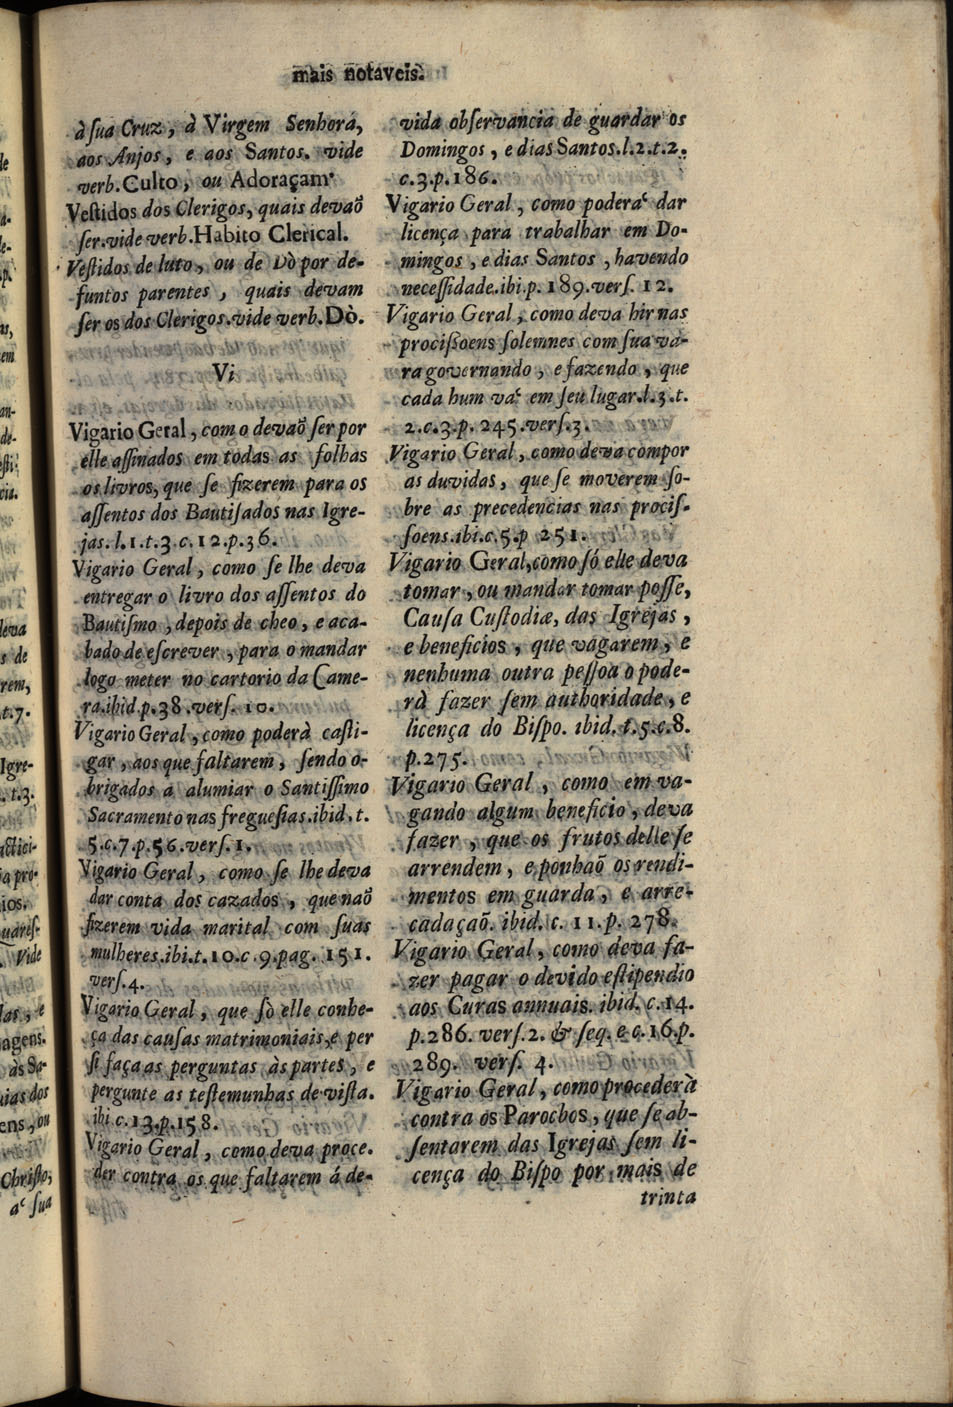 mais notaveis.
à ſua Cruz, à Virgem Senhora,
aos Anjos, e aos Santos. vide
verb. Culto, ou Adoraçam.
Veſtidos dos Clerigos, quais devaõ
ſer. vide verb. Habito Clerical.
Veſtidos de luto, ou de Dò por de-
funtos parentes, quais devam
ſer os dos Clerigos. vide verb. Dò.
Vi
Vigario Geral, como devaõ ſer por
elle aſſinados em todas as folhas
os livros, que ſe fizerem para os
aſſentos dos Bautiſados nas Igre-
jas. l. 1. t. 3. c. 12. p. 36.
Vigario Geral, como ſe lhe deva
entregar o livro dos aſſentos do
Bautiſmo, depois de cheo, e aca-
bado de eſcrever, para o mandar
logo meter no cartorio da Came-
ra. ibid. p. 38. verſ. 10.
Vigario Geral, como poderà caſti-
gar, aos que faltarem, ſendo o-
brigados a alumiar o Santiſſimo
Sacramento nas fregueſias. ibid. t.
5. c. 7. p. 56. verſ. 1.
Vigario Geral, como ſe lhe deva
dar conta dos cazados, que naõ
fizerem vida marital com ſuas
mulheres. ibi. t. 10. c. 9. pag. 151.
verſ. 4.
Vigario Geral, que ſò elle conhe-
ça das cauſas matrimoniais, e per
ſi faça as perguntas às partes, e
pergunte as teſtemunhas de viſta.
ibi c. 13. p. 158.
Vigario Geral, como deva proce.
der contra os que faltarem á de-
vida obſervancia de guardar os
Domingos, e dias Santos. l. 2. t. 2.
c. 3. p. 186.
Vigario Geral, como podera dar
licença para trabalhar em Do-
mingos, e dias Santos, havendo
neceſſidade. ibi. p. 189. verſ. 12.
Vigario Geral, como deva hir nas
prociſſoens ſolemnes com ſua va-
ra governando, e fazendo, que
cada hum va em ſeu lugar. l. 3. t.
2. c. 3. p. 245. verſ. 3.
Vigario Geral, como deva compor
as duvidas, que ſe moverem ſo-
bre as precedencias nas prociſ-
ſoens. ibi. c. 5. p 251.
Vigario Geral, como ſó elle deva
tomar, ou mandar tomar poſſe,
Cauſa Cuſtodiæ, das Igrejas,
e beneficios, que vagarem, e
nenhuma outra peſſoa o pode-
rà fazer ſem authoridade, e
licença do Biſpo. ibid. t. 5. c. 8.
p. 275.
Vigario Geral, como em va-
gando algum beneficio, deva
fazer, que os frutos delle ſe
arrendem, e ponhaõ os rendi-
mentos em guarda, e arre-
cadaçaõ. ibid. c. 11. p. 278.
Vigario Geral, como deva fa-
zer pagar o devido eſtipendio
aos Curas annuais. ibid. c. 14.
p. 286. verſ. 2. & ſeq. e c. 16. p.
289. verſ. 4.
Vigario Geral, como procederà
contra os Parochos, que ſe ab-
ſentarem das Igrejas ſem li-
cença do Biſpo por mais de
trinta